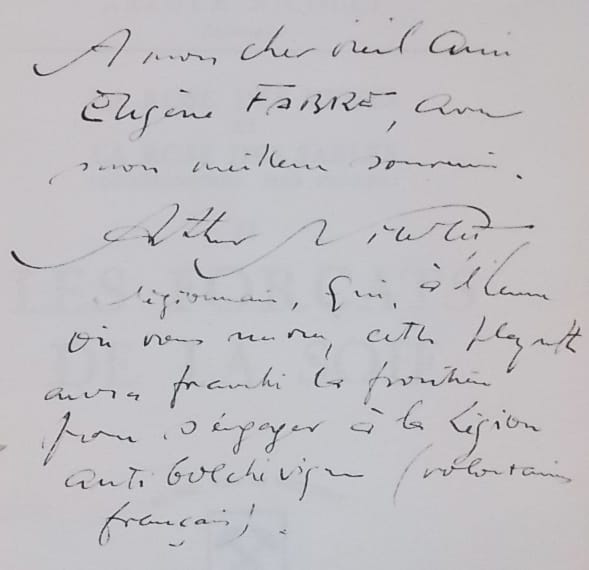 A mon cher vieil ami
Eugène FABRE, avec
mon meilleur souvenir.
Arthur Nicolet
légionnaire, qui, à l'heure
où vous lirez, cette
aura franchi la frontière
pour s'engager à la Légion
antibolchévique (volontaires
français).